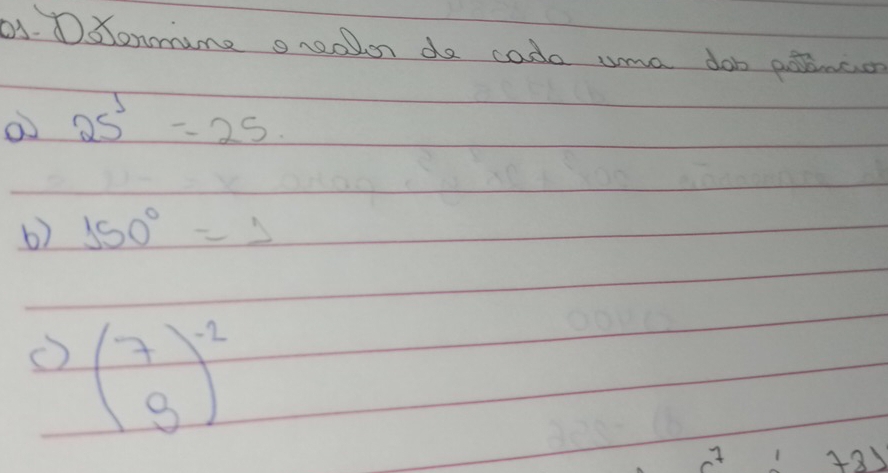 01. Determine o valor de cada uma das potências
a) 25¹ = 25.
b) 150⁰ = 1
c) (7/9)⁻²